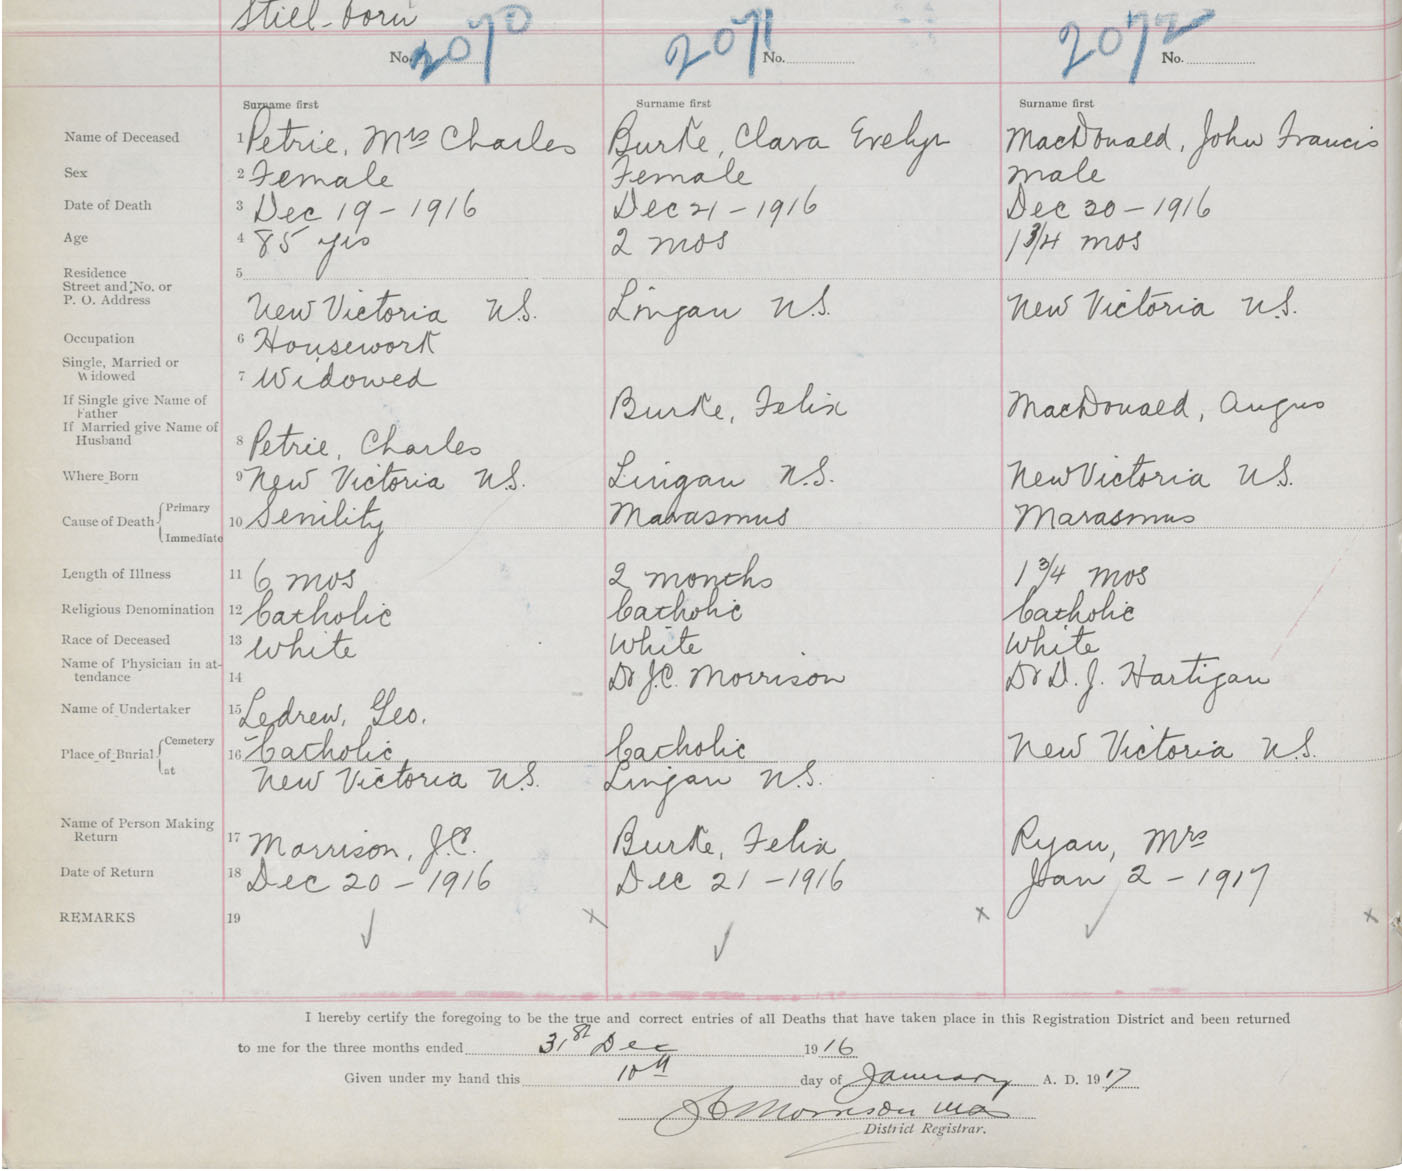 Still-born
No. 2070 2071 No. 2072 No.
Surname first Surname first Surname first
Name of Deceased 1 Petrie, Mrs Charles Burke, Clara Evelyn MacDonald, John Francis
Sex 2 Female Female Male
Date of Death 3 Dec 19 - 1916 Dec 21 - 1916 Dec 30 - 1916
Age 4 85 yrs 2 mos 1 3/4 mos
Residence 5
Street and No. or
P. O. Address New Victoria N.S. Lingan N.S. New Victoria N.S.
Occupation 6 Housework
Single, Married or
Widowed 7 Widowed
If Single give Name of
Father Burke, Felix MacDonald, Angus
If Married give Name of
Husband 8 Petrie, Charles
Where Born 9 New Victoria N.S. Lingan N.S. New Victoria N.S.
Primary
Cause of Death 10 Senility Marasmus Marasmus
Immediate
Length of Illness 11 6 mos 2 months 1 3/4 mos
Religious Denomination 12 Catholic Catholic Catholic
Race of Deceased 13 White White White
Name of Physician in at-
tendance 14 Dr J.C. Morrison Dr D. J. Hartigan
Name of Undertaker 15 Ledrew, Geo.
Cemetery
Place of Burial 16 Catholic Catholic New Victoria N.S.
at New Victoria N.S. Lingan N.S.
Name of Person Making
Return 17 Morrison, J.C. Burke, Felix Ryan, Mrs
Date of Return 18 Dec 20 - 1916 Dec 21 - 1916 Jan 2 - 1917
REMARKS 19
I hereby certify the foregoing to be the true and correct entries of all Deaths that have taken place in this Registration District and been returned
to me for the three months ended 31st Dec 1916
Given under my hand this 10th day of January A. D. 1917
JC Morrison MD
District Registrar.